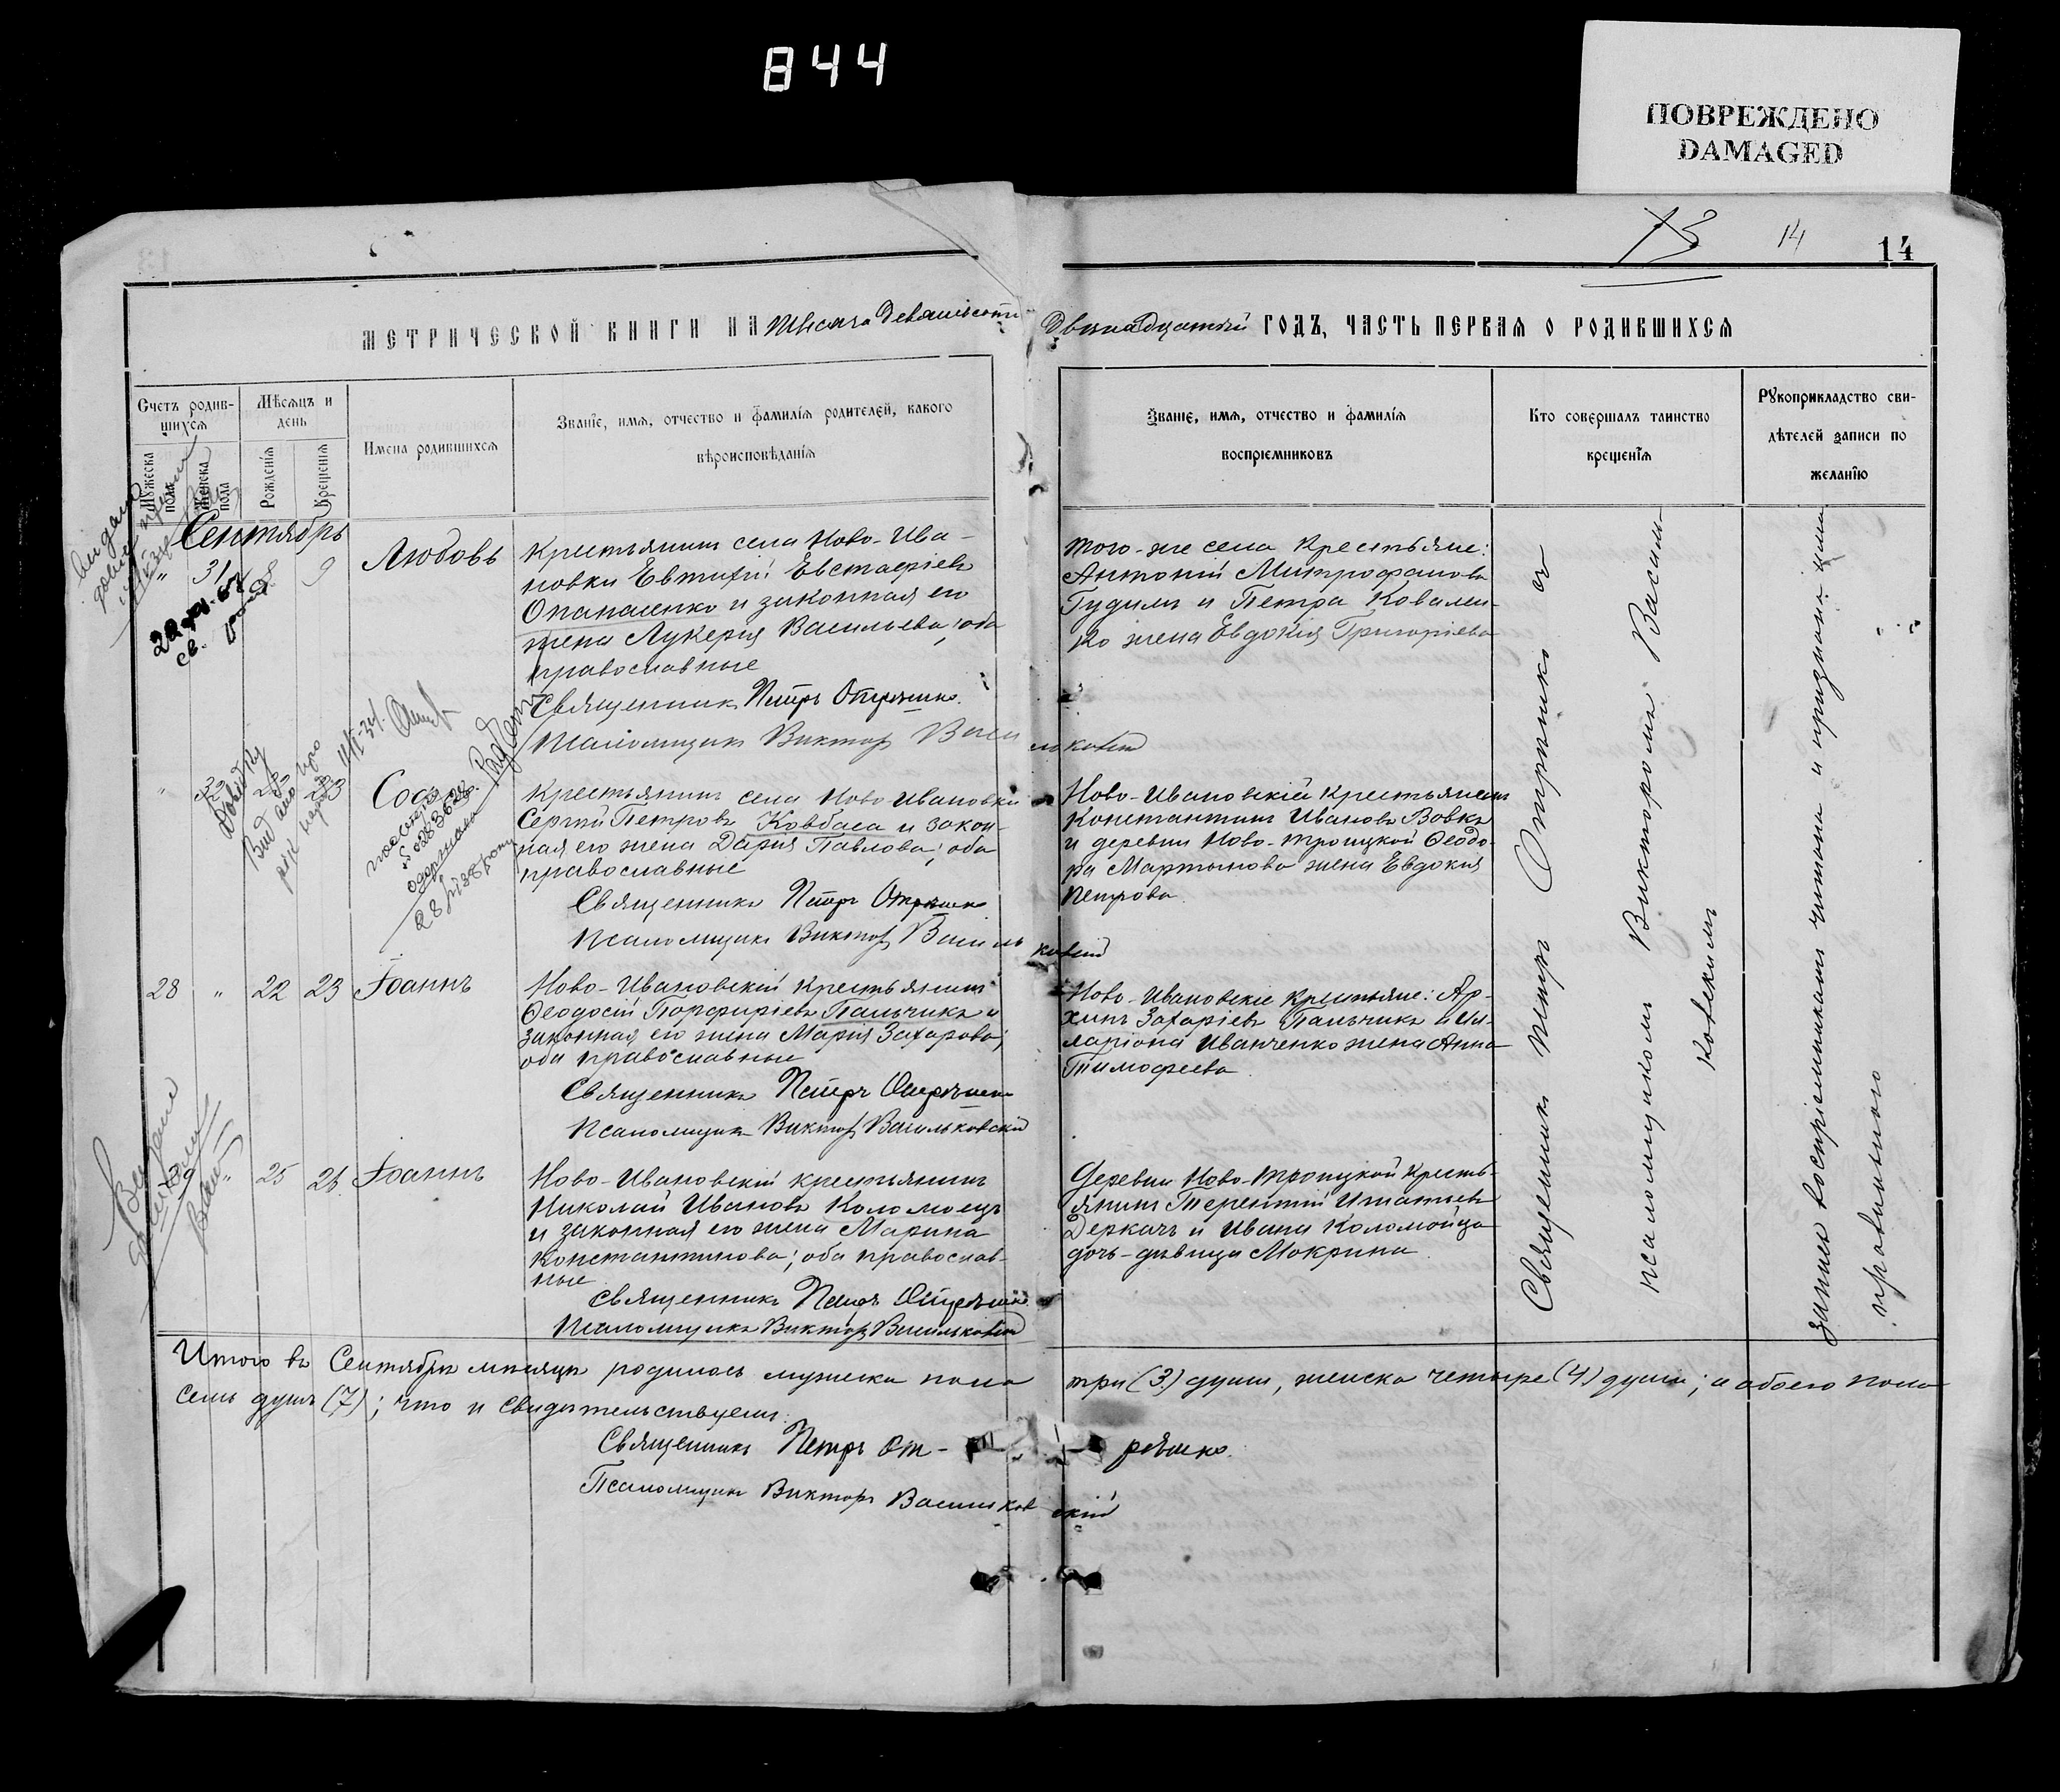 844
ПОВРЕЖДЕНО
DAMAGED
13
14
14
МЕТРИЧЕСКОЙ КНИГИ НА тысяча девятьсотъ двѣнадцатый ГОДЪ, ЧАСТЬ ПЕРВАЯ О РОДИВШИХСЯ
Счетъ родив-
шихся
Мужеска пола
Женска пола
Мѣсяцъ и
день
Рожденія
Крещенія
Имена родившихся
Званіе, имя, отчество и фамилія родителей, какого
вѣроисповѣданія
Званіе, имя, отчество и фамилія
воспріемниковъ
Кто совершалъ таинство
крещенія
Рукоприкладство сви-
дѣтелей записи по
желанію
Сентябрь
" 31 8 9 Любовь
Крестьянинъ села Ново-Ива-
новки Евтихій Евстафіевъ
Опанасенко и законная его
жена Лукерія Васильева; оба
православные
Священникъ Петръ Отрѣшко
Псаломщикъ Виктор Васильковскій
того-же села крестьяне:
Антоній Митрофановъ
Гудимъ и Петра Ковален-
ко жена Евдокія Григоріева
" 32 23
Крестьянинъ села Ново Ивановки
Сергій Петровъ Ковбаса и закон-
ная его жена Дарія Павлова; оба
православные
Священникъ Петръ Отрѣшко
Псаломщикъ Виктор Васильковскій
Ново-Ивановскій крестьянинъ
Константинъ Ивановъ Вовкъ
и деревни Ново-Троицкой Ѳеодо-
ра Мартынова жена Евдокія
Петрова.
28 " 22 23 Іоаннъ
Ново-Ивановскій крестьянинъ
Ѳеодосій Порфиріевъ Пальчикъ и
законная его жена Марія Захарова;
оба православные
Священникъ Петръ Отрѣшко
Псаломщикъ Виктор Васильковскій
Ново-Ивановскіе крестьяне: Ар-
хипъ Захаріевъ Пальчикъ и Ил-
ларіона Иванченко жена Анна
Тимофеева.
29 " 25 26 Іоаннъ
Ново-Ивановскій крестьянинъ
Николай Ивановъ Коломоецъ
и законная его жена Марина
Константинова; оба православ-
ные
Священникъ Петръ Отрѣшко
Псаломщикъ Викторъ Васильковскій
Деревни Ново-Троицкой кресть-
янинъ Терентій Игнатьевъ
Деркачъ и Ивана Коломойца
дочь-дѣвица Мокрина.
Священникъ Петръ Отрѣшко съ
псаломщикомъ Викторомъ Василь-
ковскимъ
Запись воспріемниками читана и признана ими
правильною
Итого въ Сентябрѣ мѣсяцѣ родилось мужеска пола три (3) души, женска четыре (4) души; а обоего пола
семь душъ (7); что и свидѣтельствуемъ:
Священникъ Петръ Отрѣшко.
Псаломщикъ Викторъ Васильковскій